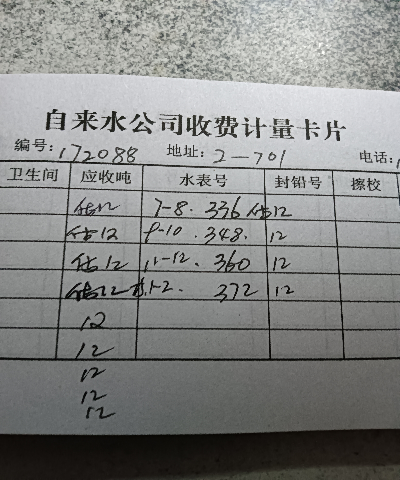 自来水公司收费计量卡片
编号: 172088 地址: 2-701 电话:
卫生间 应收吨 水表号 封铅号 擦校
估12 7-8. 336 估12
估12 9-10. 348. 12
估12 11-12. 360 12
估12 1-2. 372 12
12
12
12
12
12